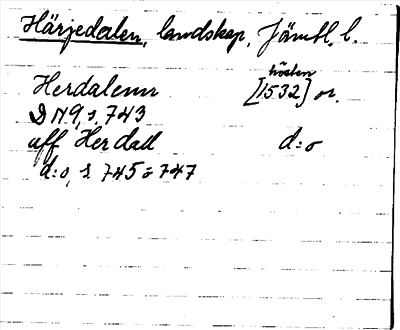 Härjedalen, landskap, Jämtl. l.
Herdalenn [hösten 1532] or.
DN 9, s. 743
uff Herdall d:o
d:o, s. 745 o 747